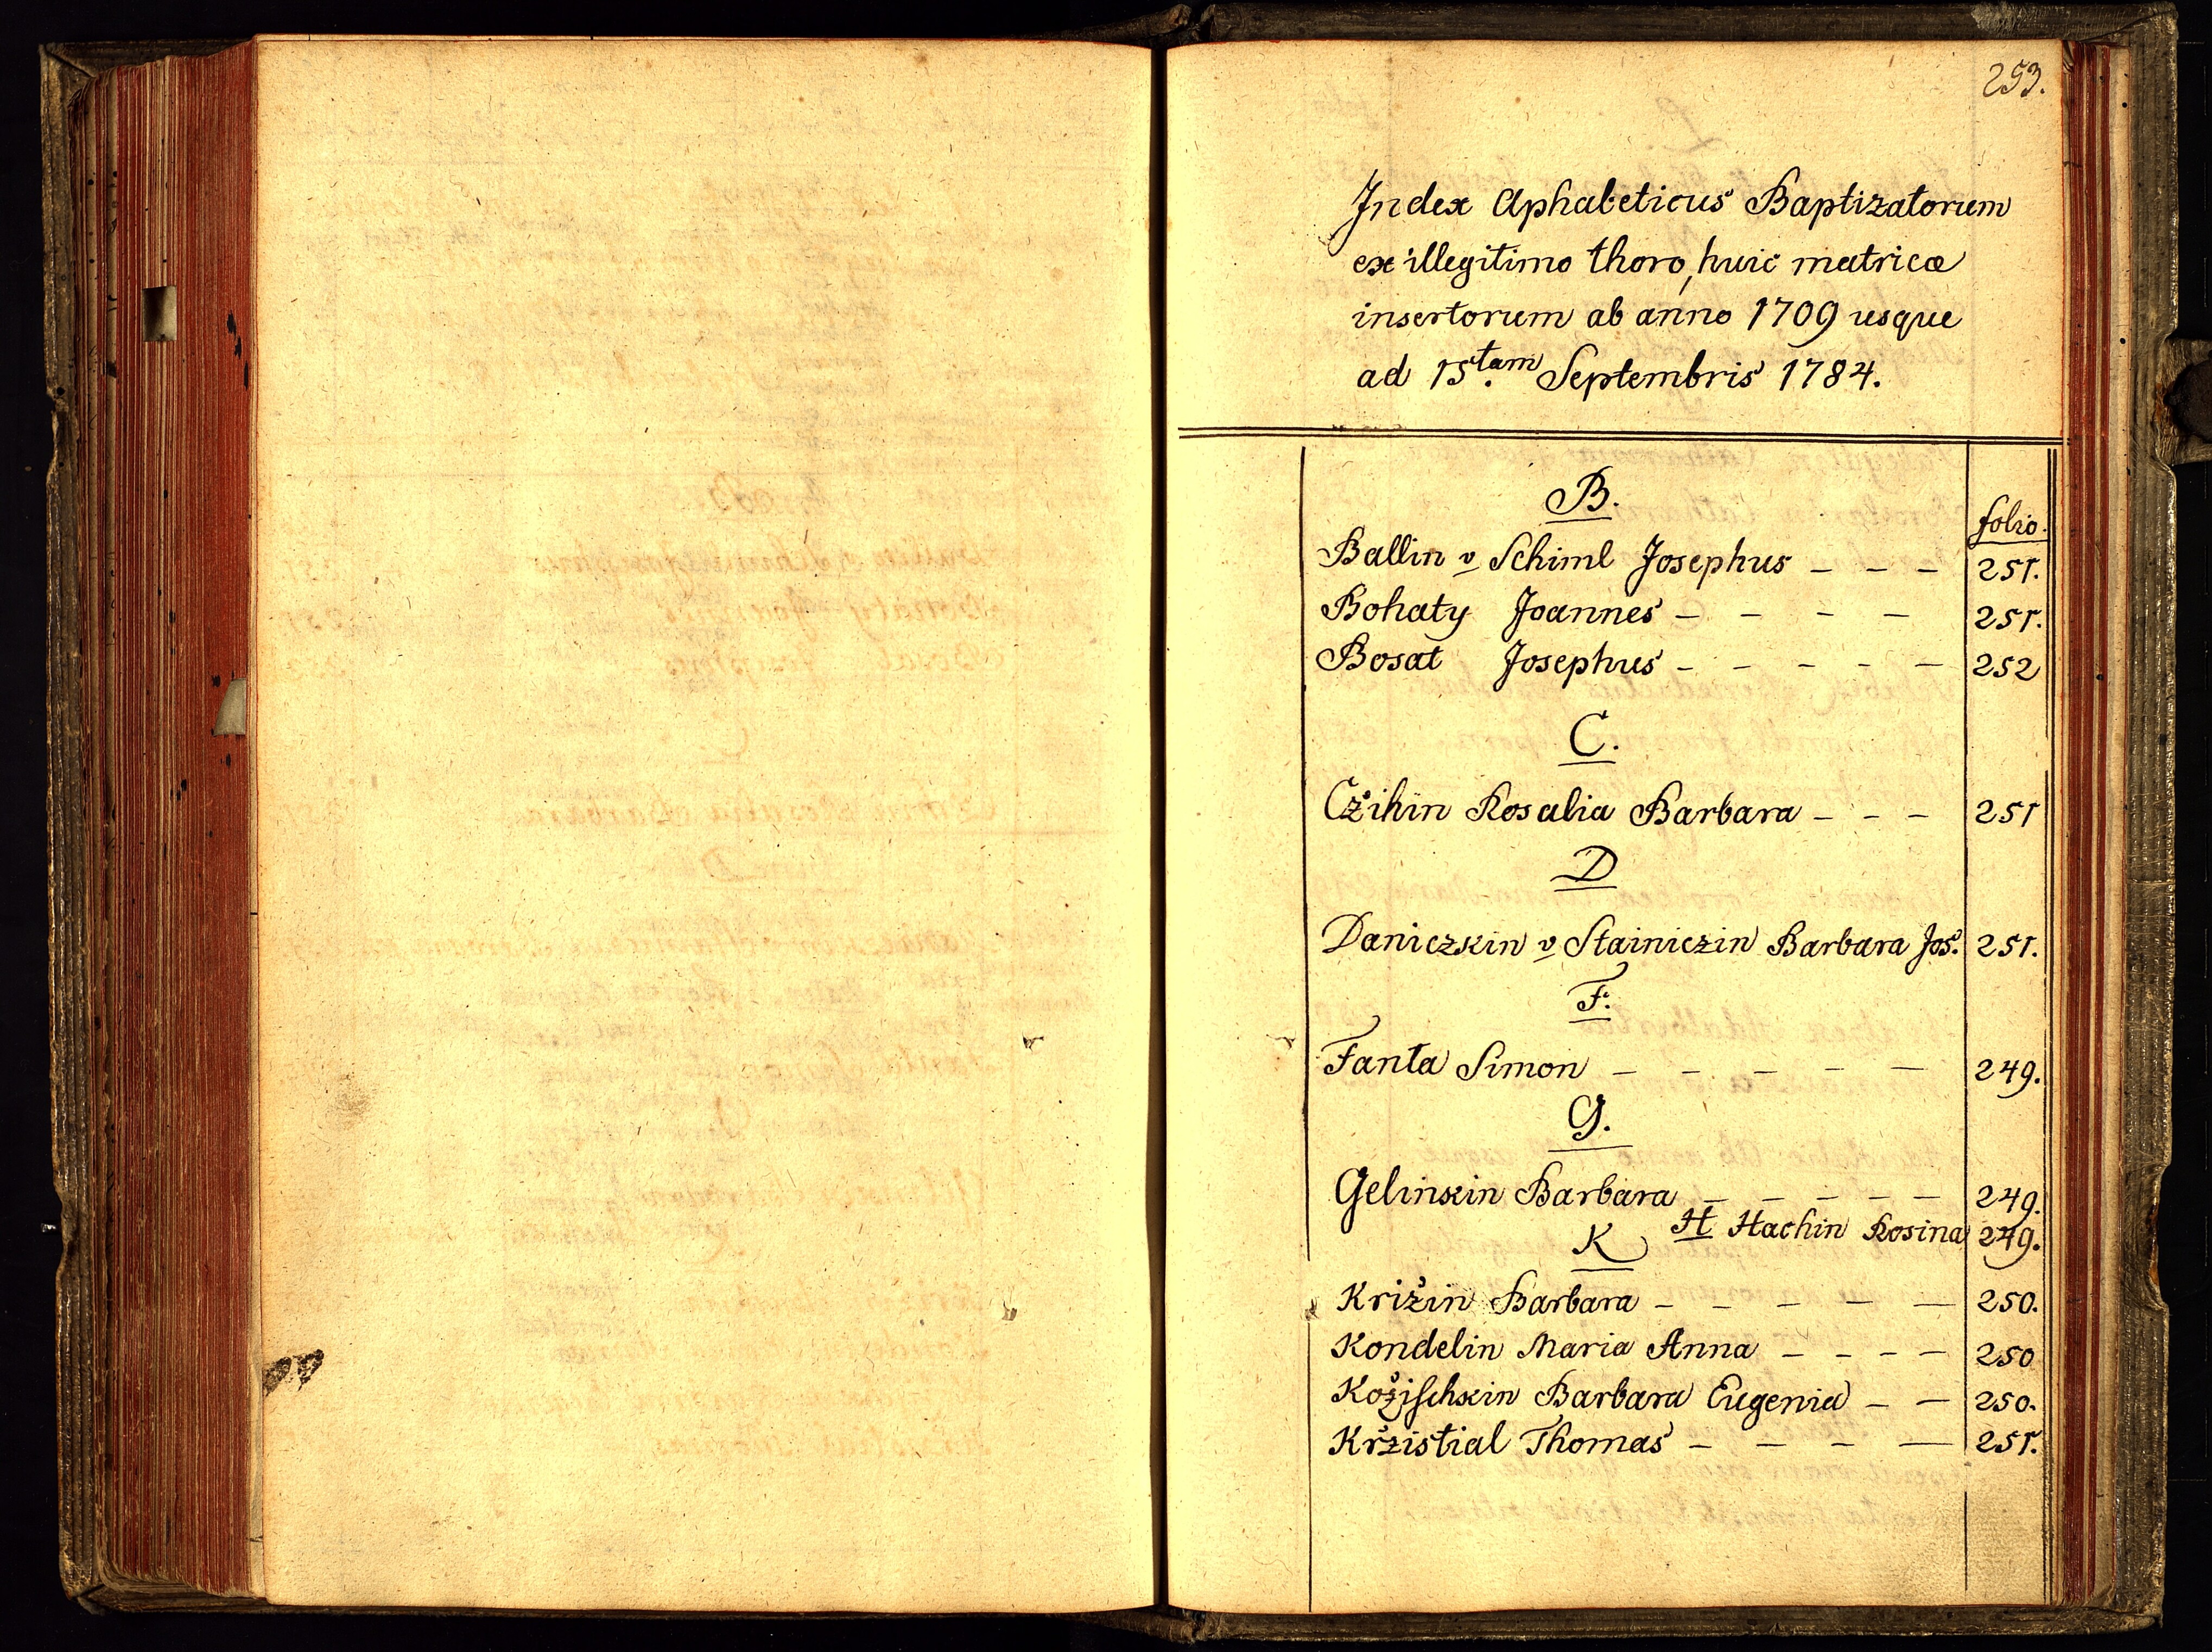 253.
Index Aphabeticus Baptizatorum
ex illegitimo thoro, huic matricæ
insertorum ab anno 1709 usque
ad 15.tam Septembris 1784.
B.
folio.
Ballin v Schiml Josephus - - - 251.
Bohaty Joannes - - - - 251.
Bosat Josephus - - - - - 252
C.
Cžihin Rosalia Barbara - - - 251
D
Daniczkin v Stainiczin Barbara Jos. 251.
F.
Fanta Simon - - - - - 249.
G.
Gelinkin Barbara - - - - - 249.
H Hachin Rosina 249.
K
Križin Barbara - - - - - 250.
Kondelin Maria Anna - - - - 250
Kožischkin Barbara Eugenia - - 250.
Kržistial Thomas - - - - 251.